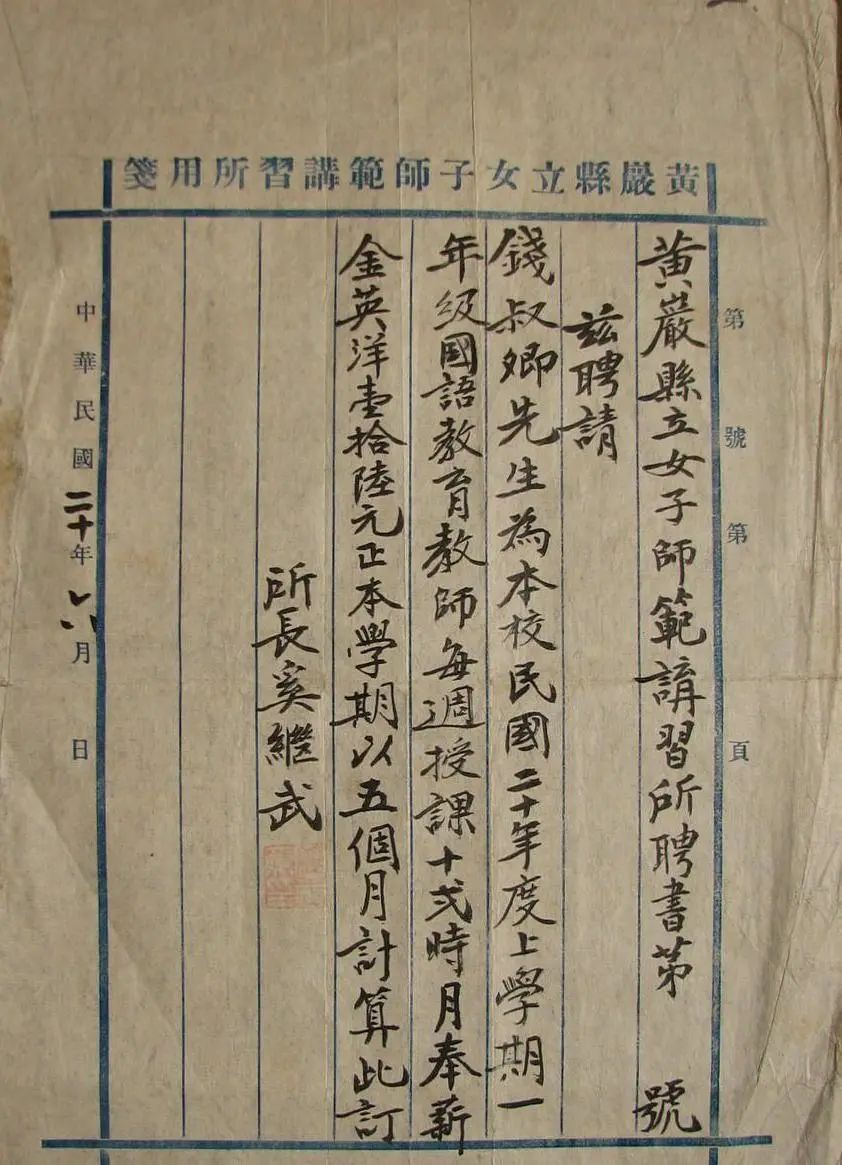 黃巖縣立女子師範講習所用箋
第 號 第 頁
黃巖縣立女子師範講習所聘書第 號
兹聘請
錢叔卿先生為本校民國二十年度上學期一
年級國語教育教師每週授課十弍時月奉薪
金英洋壹拾陸元正本學期以五個月計算此訂
所長奚繼武
中華民國二十年六月 日